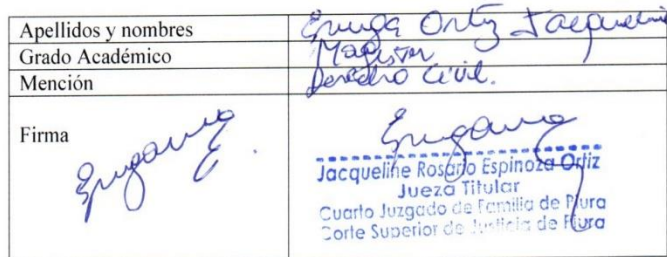 Apellidos y nombres Ortiz Jacqueline
Grado Académico Magister
Mención Derecho Civil.
Firma
Jacqueline Rosario Espinoza Ortiz
Jueza Titular
Cuarto Juzgado de Familia de Piura
Corte Superior de Justicia de Piura